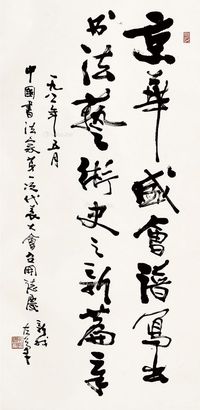 京华盛會譜寫出
书法藝術史之新篇章
一九八一年五月
中國書法家第一次代表大會召開誌慶